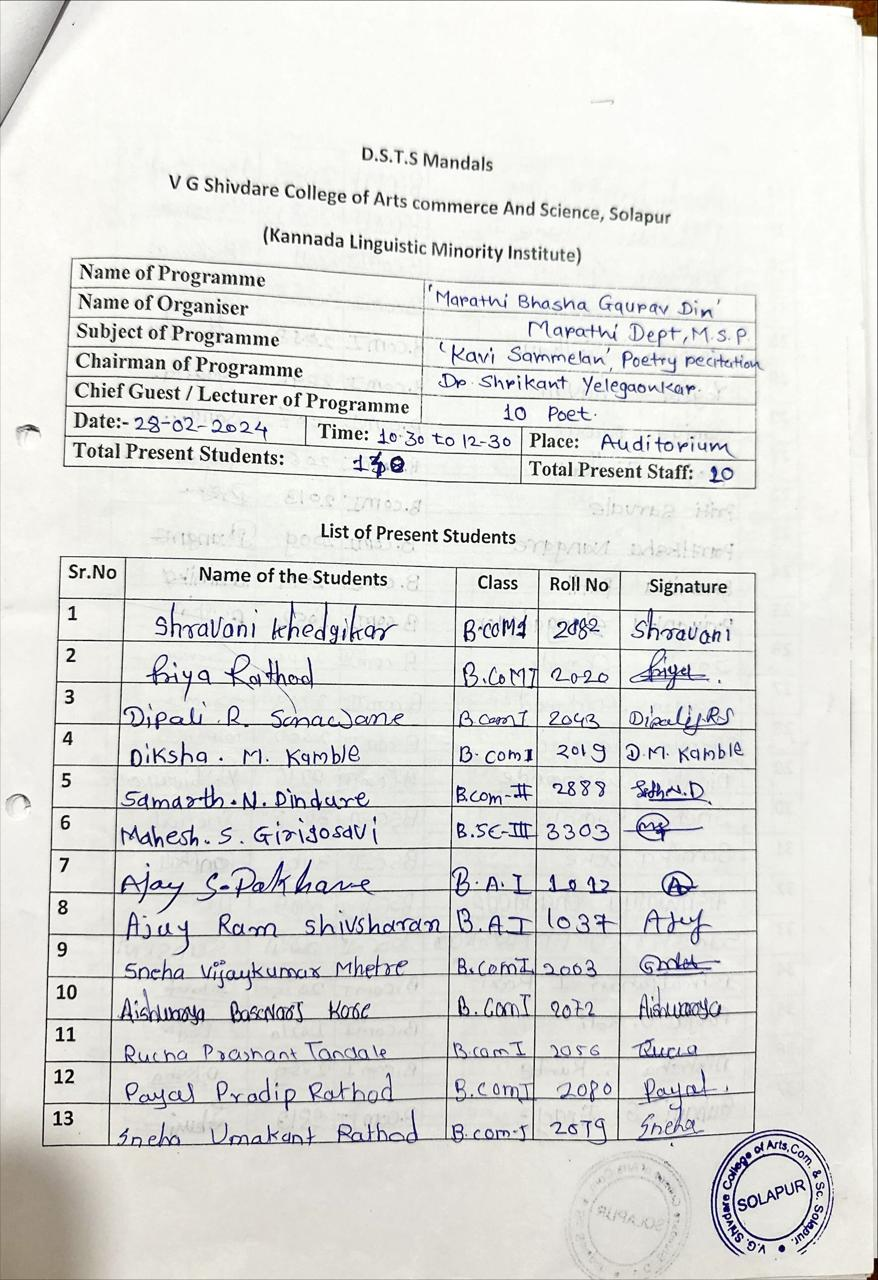 D.S.T.S Mandals
V G Shivdare College of Arts commerce And Science, Solapur
(Kannada Linguistic Minority Institute)
Name of Programme 'Marathi Bhasha Gaurav Din'
Name of Organiser Marathi Dept, M.S.P.
Subject of Programme 'Kavi Sammelan', Poetry recitation
Chairman of Programme Dr Shrikant Yelegaonkar.
Chief Guest / Lecturer of Programme 10 Poet.
Date:- 28-02-2024 Time: 10-30 to 12-30 Place: Auditorium
Total Present Students: Total Present Staff: 10
List of Present Students
Sr.No Name of the Students Class Roll No Signature
1 Shravani Khedgikar B.COM1 2082 Shravani
2 Priya Rathod B.COMI 2020 Priya.
3 Dipali. R. Sonawane B.comI 2043 Dipali.R.S
4 Diksha. M. Kamble B.comI 2019 D.M. Kamble
5 Samarth.N. Dindure B.com-II 2888
6 Mahesh. S. Girigosavi B.SC-III 3303
7 Ajay S. Pakhare B.A.I 1012 A
8 Ajay Ram Shivsharan B.A I 1037 Ajay
9 Sneha Vijaykumar Mhetre B.comI 2003
10 Aishwarya Basavraj Kore B.ComI 2072 Aishwarya
11 Rucha Prashant Tandale B.comI 2056 Rucha
12 Payal Pradip Rathod B.comI 2080 Payal.
13 Sneha Umakant Rathod B.com-I 2079 Sneha
V.G. Shivdare College of Arts, Com. & Sc. Solapur.
SOLAPUR